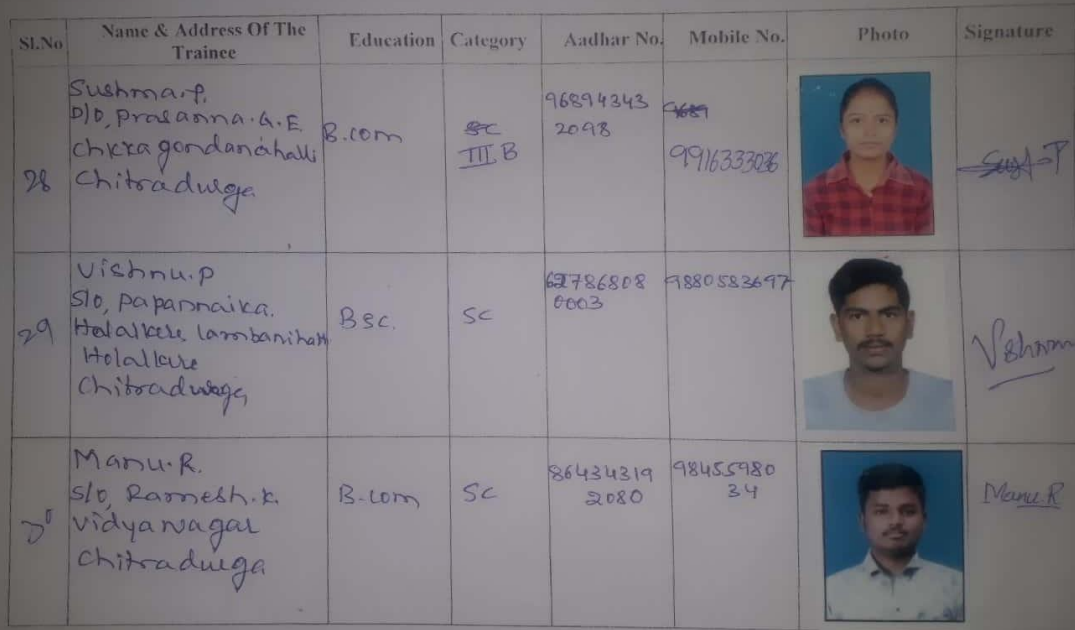 Sl.No Name & Address Of The Trainee Education Category Aadhar No. Mobile No. Photo Signature
Sushma.P.
D/o, Prasanna.G.E.
Chitradurga
28
B.com
SC
III B
96894343
2098
9689
9916333036
Vishnu.P
S/o, Papannaika.
Holalkere, Lambanihatti
Holalkere
Chitradurga
29
Bsc.
SC
62786808
0003
9880583697
Vishnu
Manu.R.
S/o, Ramesh.K.
Vidyanagar
Chitradurga
30
B.com
SC
86434319
2080
98455980
34
Manu.R